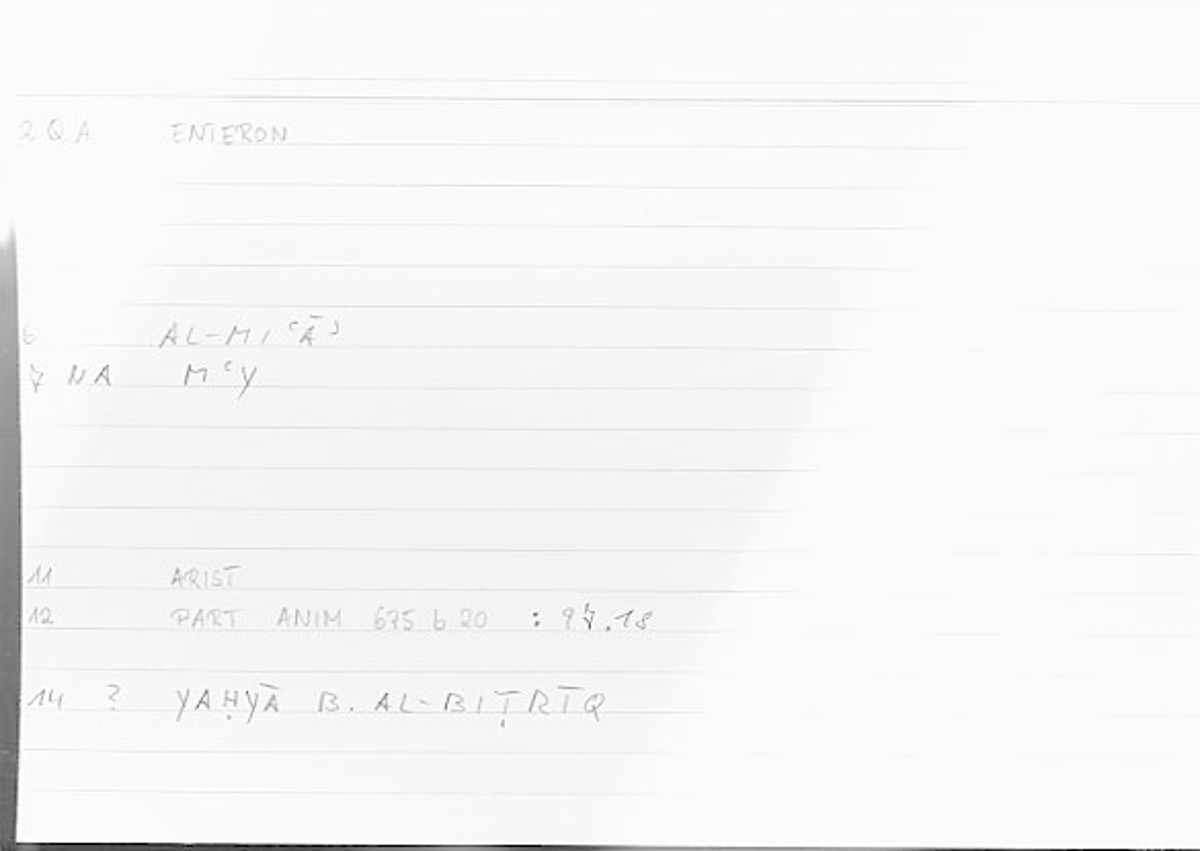 2 Q A ENTERON
6 AL-MIʿĀʾ
7 N A MʿY
11 ARIST
12 PART ANIM 675 b 20 : 97.18
14 ? YAḤYĀ B. AL-BIṬRĪQ